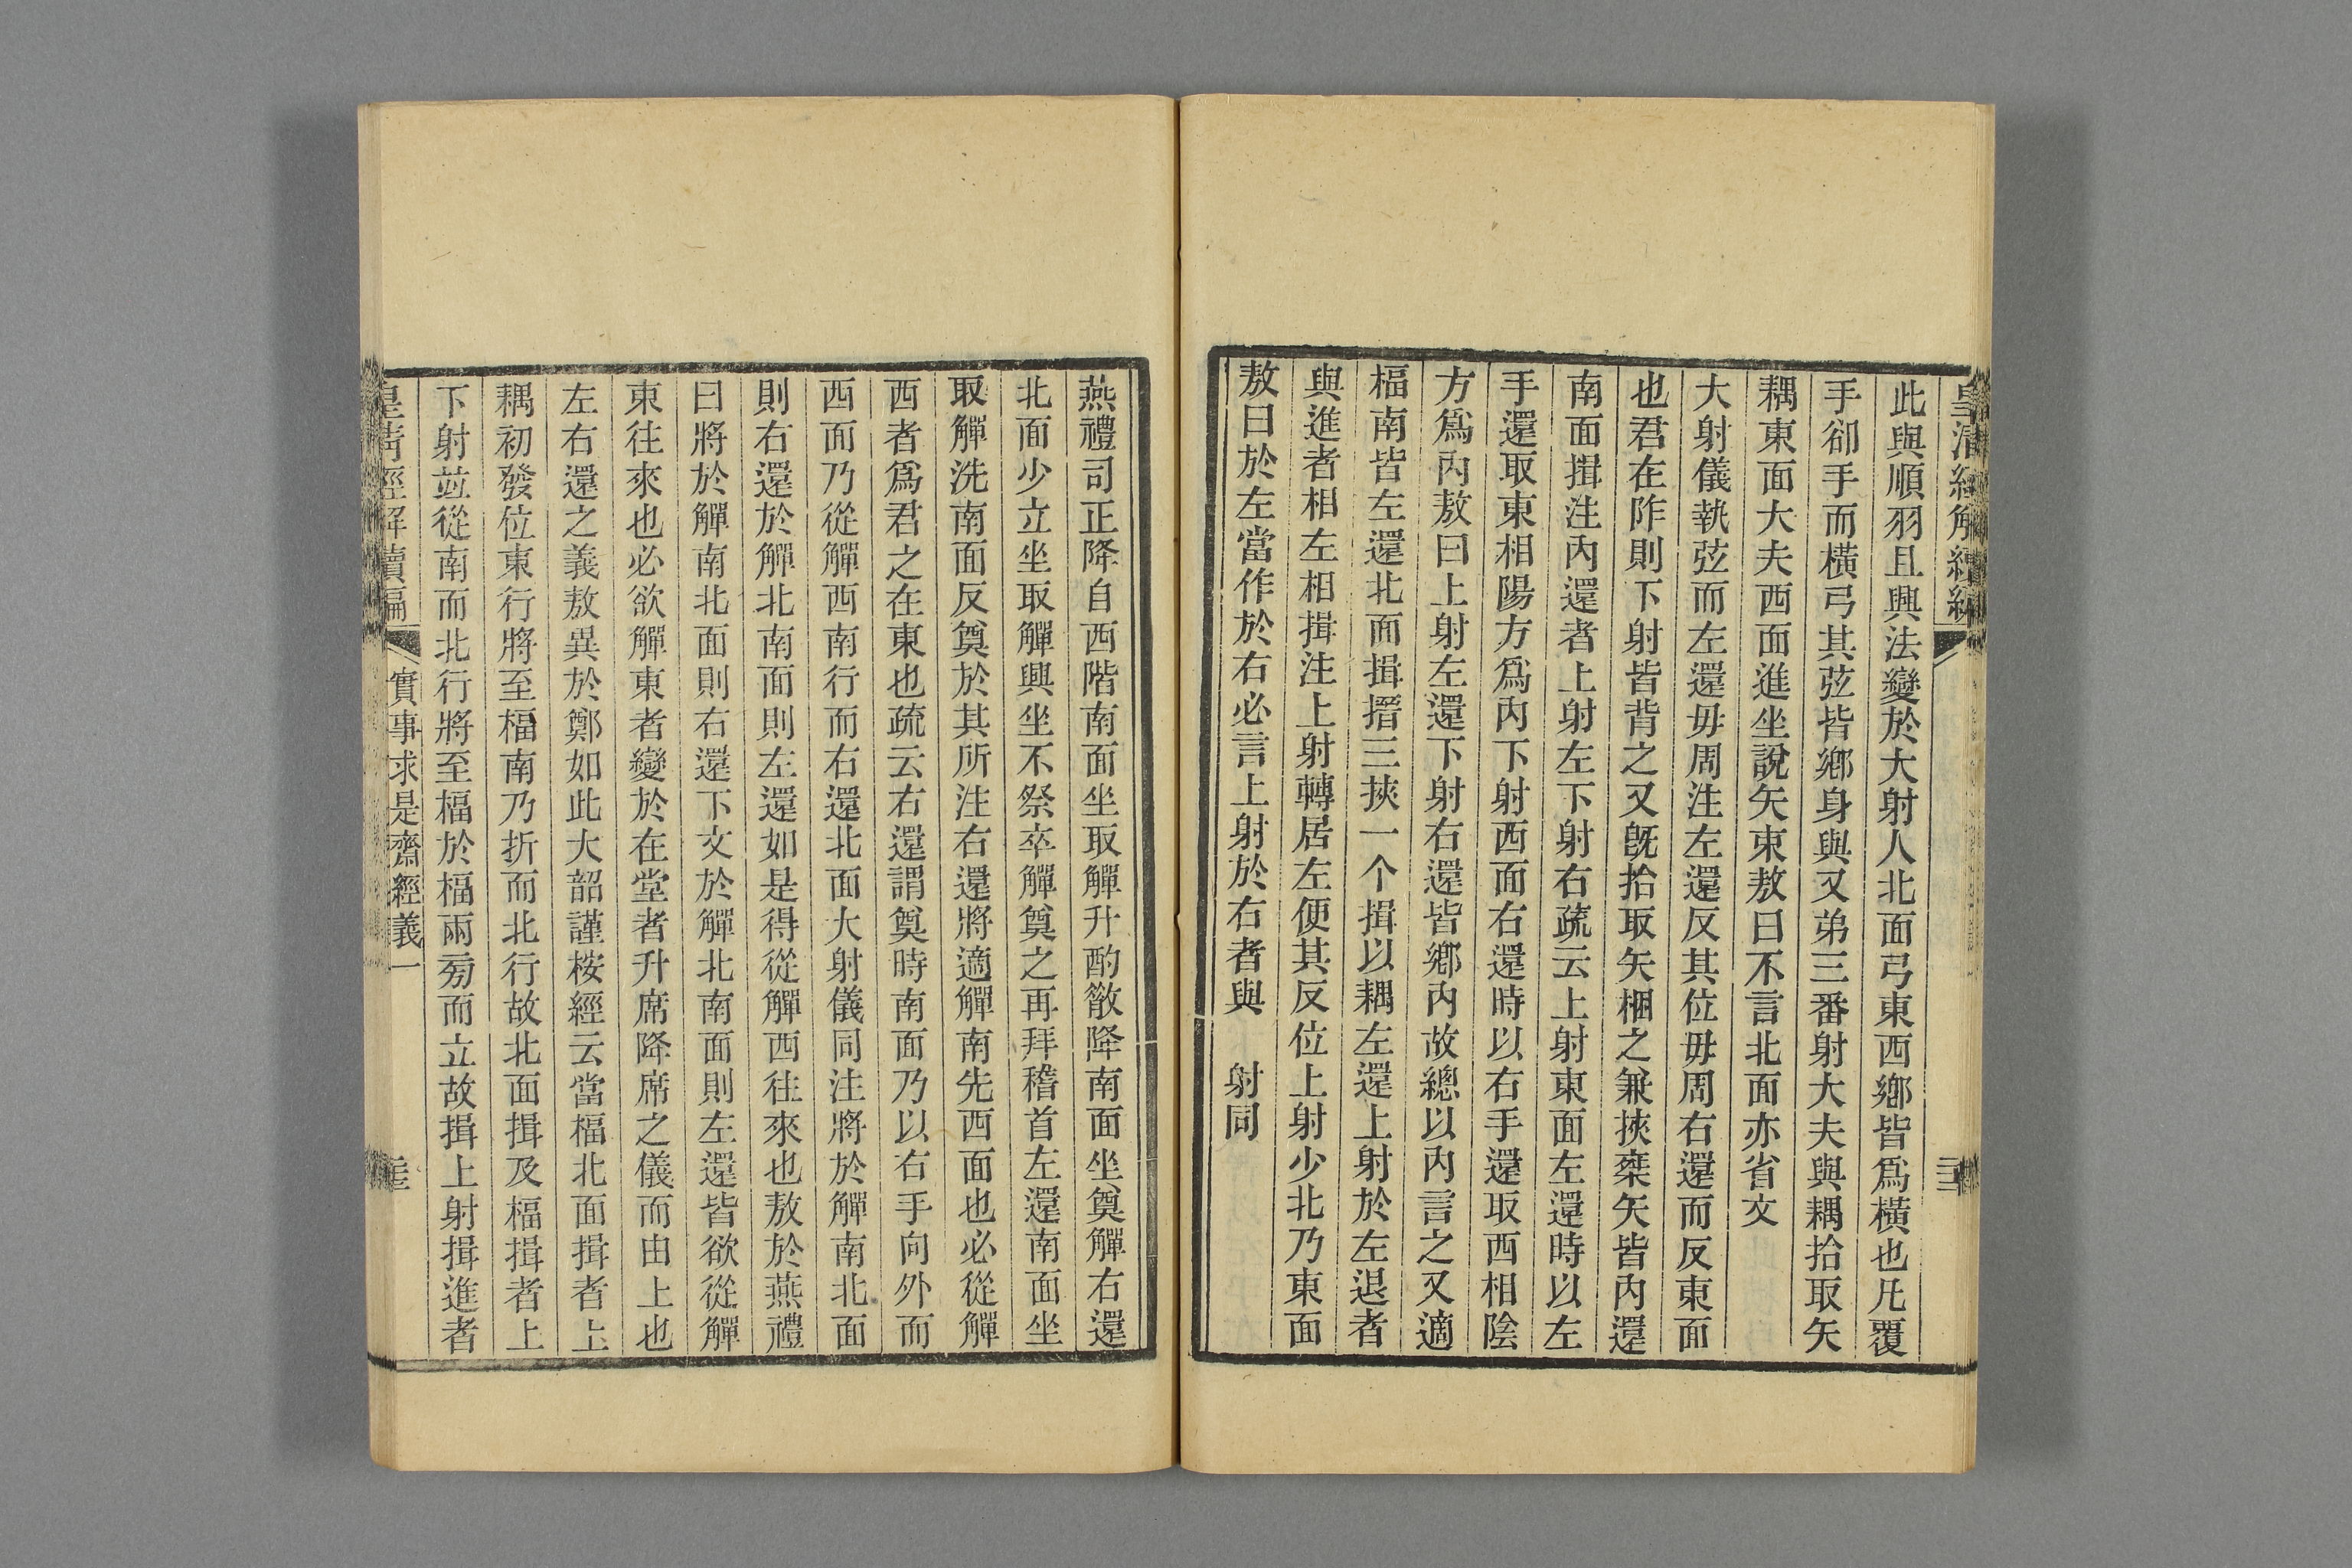 皇清經解續編
此與順羽且興法變於大射人北面弓東西鄉皆爲橫也凡覆
手郤手而橫弓其弦皆鄉身與又弟三番射大夫與耦拾取矢
耦東面大夫西面進坐說矢東敖曰不言北面亦省文
大射儀執弦而左還毋周注左還反其位毋周右還而反東面
也君在阼則下射皆背之又旣拾取矢梱之兼挾椉矢皆內還
南面揖注內還者上射左下射右疏云上射東面左還時以左
手還取東相陽方爲內下射西面右還時以右手還取西相陰
方爲內敖曰上射左還下射右還皆鄉內故總以內言之又適
楅南皆左還北面揖搢三挾一个揖以耦左還上射於左退者
與進者相左相揖注上射轉居左便其反位上射少北乃東面
敖曰於左當作於右必言上射於右者與　射同
燕禮司正降自西階南面坐取觶升酌散降南面坐奠觶右還
北面少立坐取觶興坐不祭卒觶奠之再拜稽首左還南面坐
取觶洗南面反奠於其所注右還將適觶南先西面也必從觶
西者爲君之在東也疏云右還謂奠時南面乃以右手向外而
西面乃從觶西南行而右還北面大射儀同注將於觶南北面
則右還於觶北南面則左還如是得從觶西往來也敖於燕禮
曰將於觶南北面則右還下文於觶北南面則左還皆欲從觶
東往來也必欲觶東者變於在堂者升席降席之儀而由上也
左右還之義敖異於鄭如此大韶謹桉經云當楅北面揖者上
耦初發位東行將至楅南乃折而北行故北面揖及楅揖者上
下射竝從南而北行將至楅於楅兩旁而立故揖上射揖進者
皇清經解續編
實事求是齋經義一